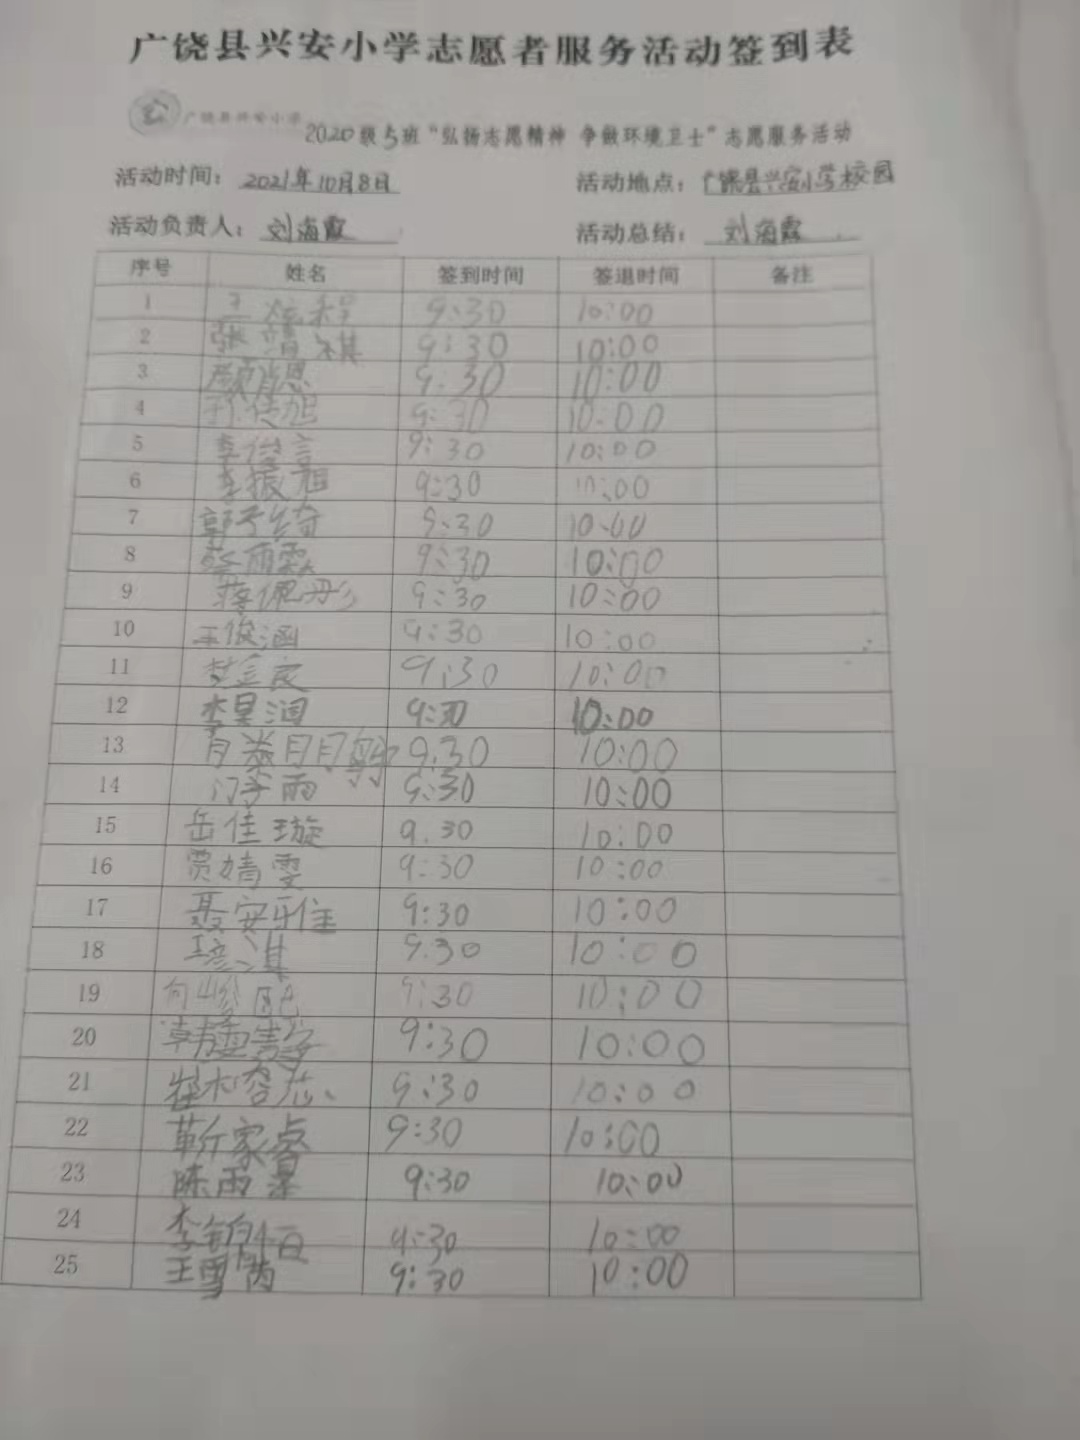 广饶县兴安小学志愿者服务活动签到表
广饶县兴安小学
2020级5班“弘扬志愿精神 争做环境卫士”志愿服务活动
活动时间：2021年10月8日 活动地点：广饶县兴安小学校园
活动负责人：刘海霞 活动总结：刘海霞
序号 姓名 签到时间 签退时间 备注
1 王炫程 9:30 10:00
2 张清祺 9:30 10:00
3 颜肖恩 9:30 10:00
4 孙传旭 9:30 10:00
5 李俊言 9:30 10:00
6 李振旭 9:30 10:00
7 郭子绮 9:30 10:00
8 蔡雨霖 9:30 10:00
9 蒋佩彤 9:30 10:00
10 王俊涵 9:30 10:00
11 9:30 10:00
12 李昊润 9:30 10:00
13 9:30 10:00
14 门子雨 9:30 10:00
15 岳佳璇 9:30 10:00
16 贾婧雯 9:30 10:00
17 聂安雅 9:30 10:00
18 9:30 10:00
19 9:30 10:00
20 9:30 10:00
21 9:30 10:00
22 靳家睿 9:30 10:00
23 陈雨 9:30 10:00
24 李 9:30 10:00
25 王雪芮 9:30 10:00